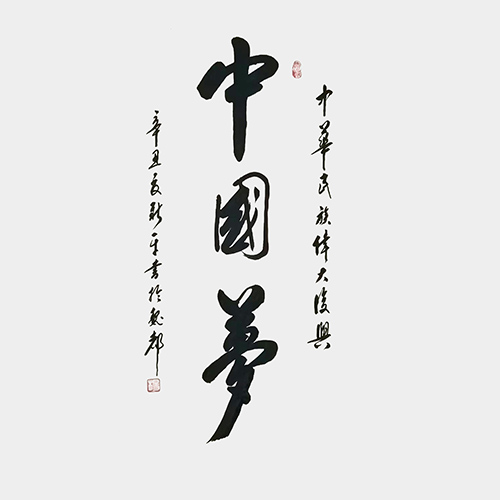 中華民族偉大復興
中國夢
辛丑夏新平書於魏都